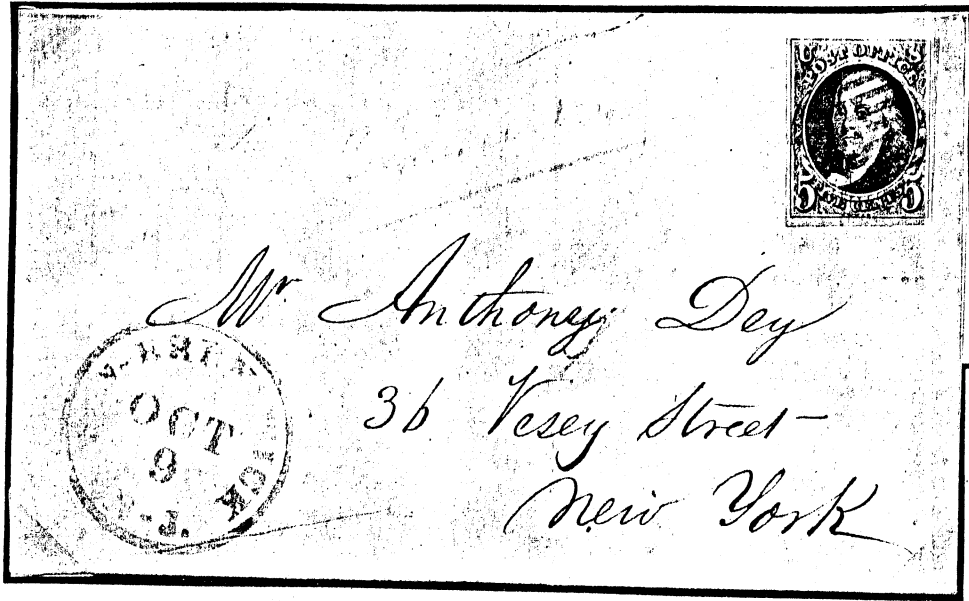 U S
POST OFFICE
FIVE CENTS
5 5
Mr Anthony Dey
36 Vesey Street
New York
OCT
9
N.J.